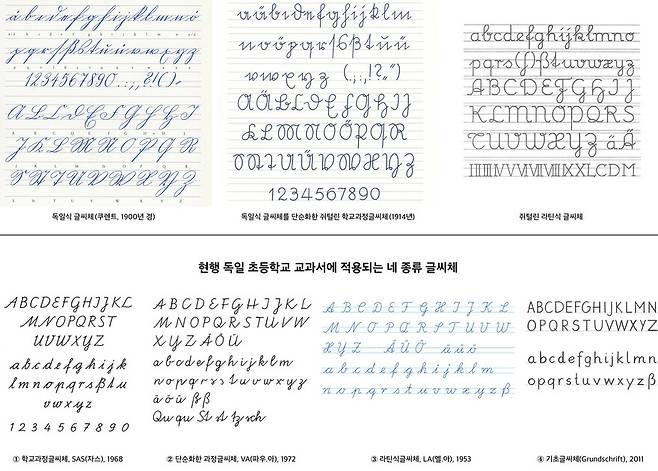 abcdefghijklmnö
pqrſsßtüvwxyz
1234567890.,:;?!()-
ABCDEFGHI
JKLMNOPQR
STUVWXYZ
독일식 글씨체(쿠렌트, 1900년 경)
aäbcdefghijklm
noöpqrſsßtuü
vwxyz (,;,!?„")
AÄBCDEFGHIJ
KLMNOÖPQR
STUÜVWXYZ
1234567890
독일식 글씨체를 단순화한 쥐털린 학교과정글씨체(1914년)
abcdefghijklmno
pqrs(ſ)ßtuvwxyz
ABCDEFGHIJ
KLMNOPQRS
TUVWXYZ äÄ
쥐털린 라틴식 글씨체
현행 독일 초등학교 교과서에 적용되는 네 종류 글씨체
ABCDEFGHIJKL
MNOPQRST
UVWXYZ
abcdefghijk
lmnopqrsßtu
vwxyz
1234567890
① 학교과정글씨체, SAS(자스), 1968
ABCDEFGHIJKLM
NOPQRSTUVW
XYZÄÖÜ
abcdefghijklm
nopqrstuvwxyz
äöü ß
Qu qu St st tz sch
② 단순화한 과정글씨체, VA(파우.아), 1972
ABCDEFGHIJKL
MNOPQRSTUVW
XYZ ÄÜÖ äüö
abcdefghijklm
nopqrstuvwxyzß
③ 라틴식글씨체, LA(엘.아), 1953
ABCDEFGHIJKLMN
OPQRSTUVWXYZ
abcdefghijklmn
opqrstuvwxyzß
④ 기초글씨체(Grundschrift), 2011